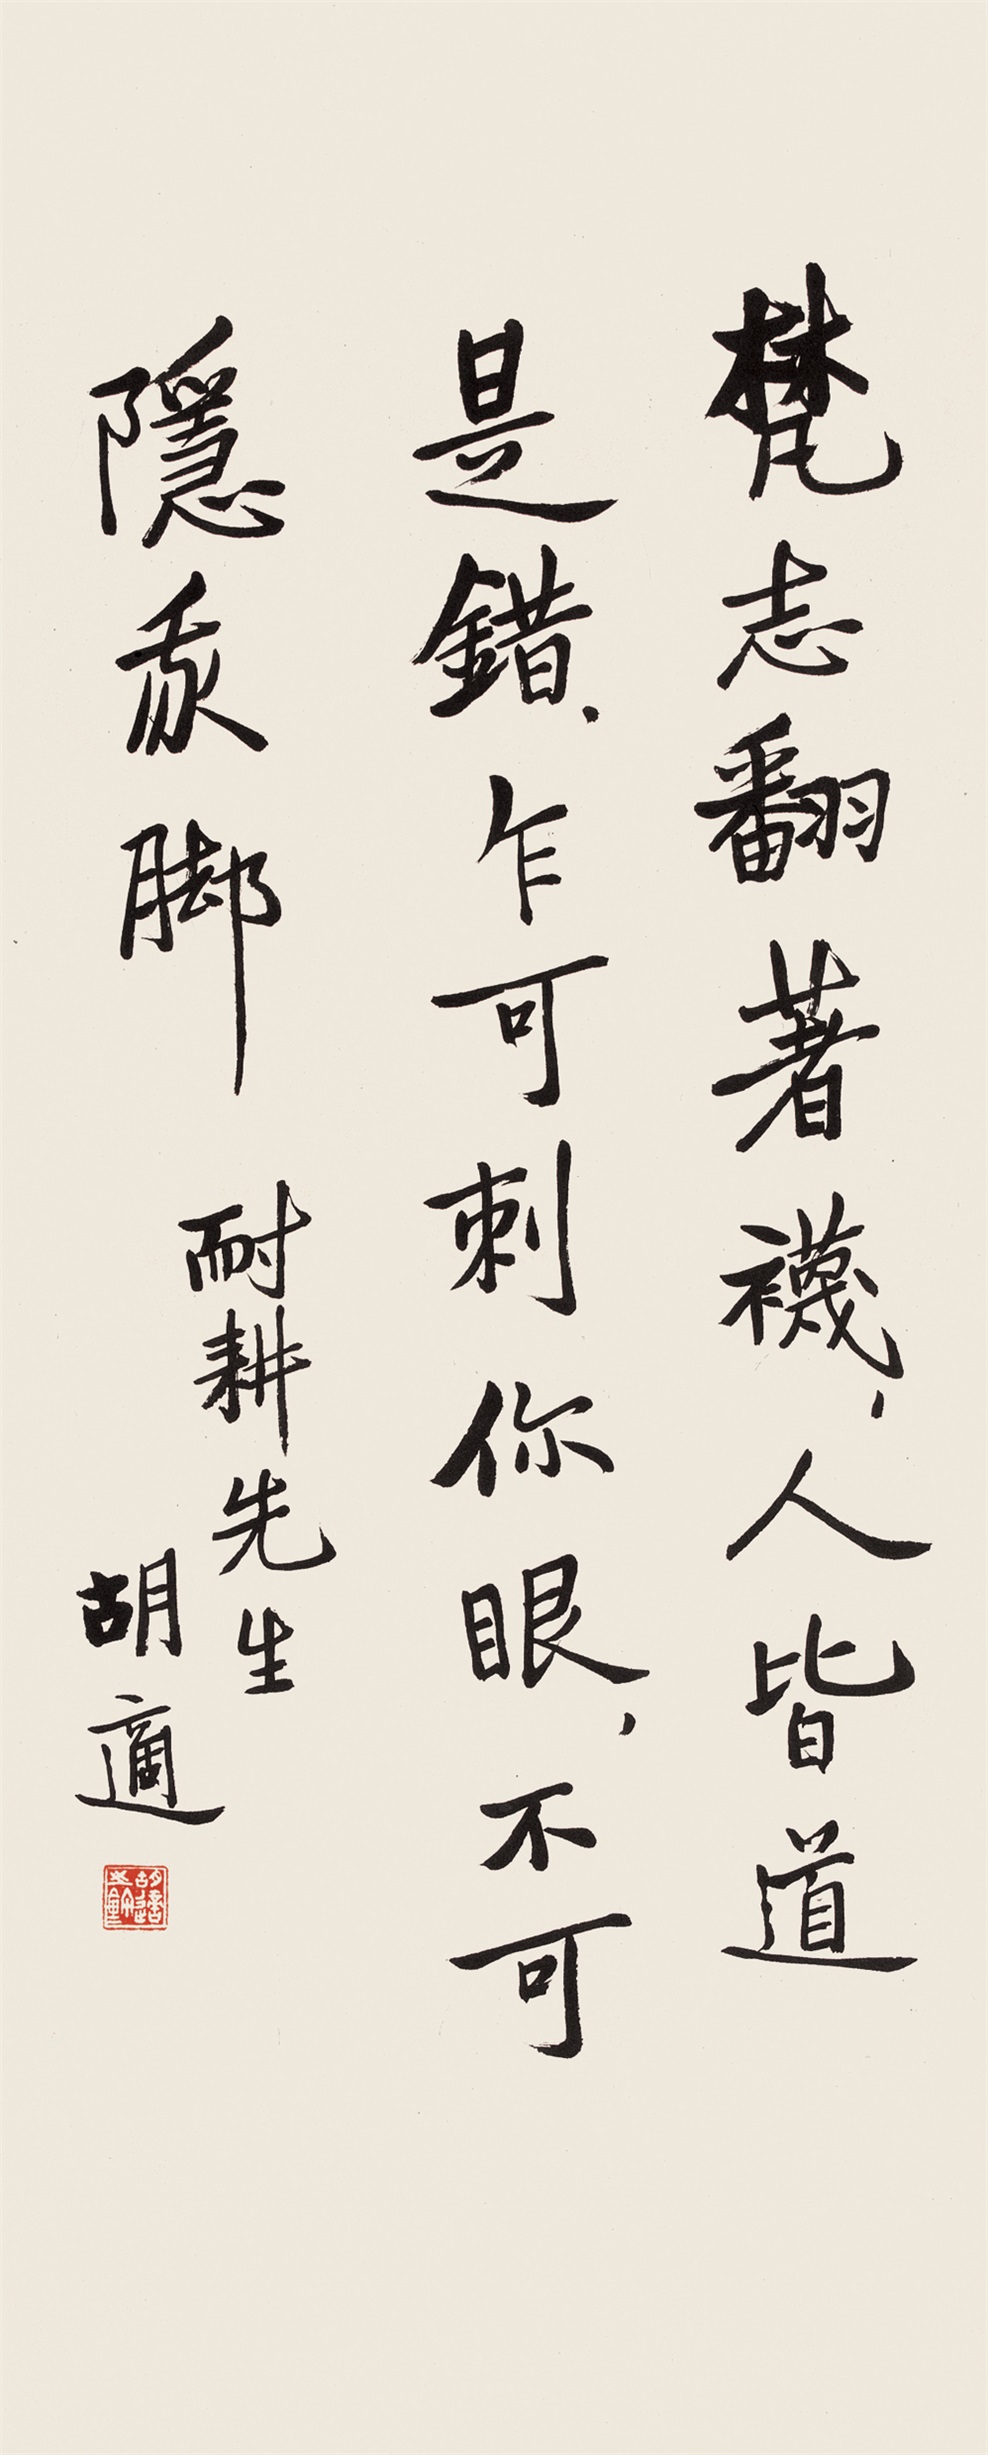 梵志翻著襪，人皆道
是錯．乍可刺你眼，不可
隱我脚
耐耕先生
胡適
胡適之鉥